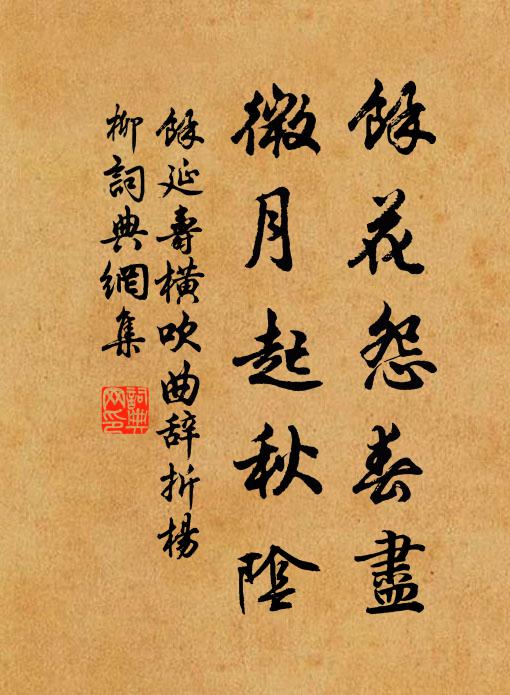 餘花怨春盡
微月起秋陰
餘延壽橫吹曲辞折楊
柳詞典網集
詞典
网印